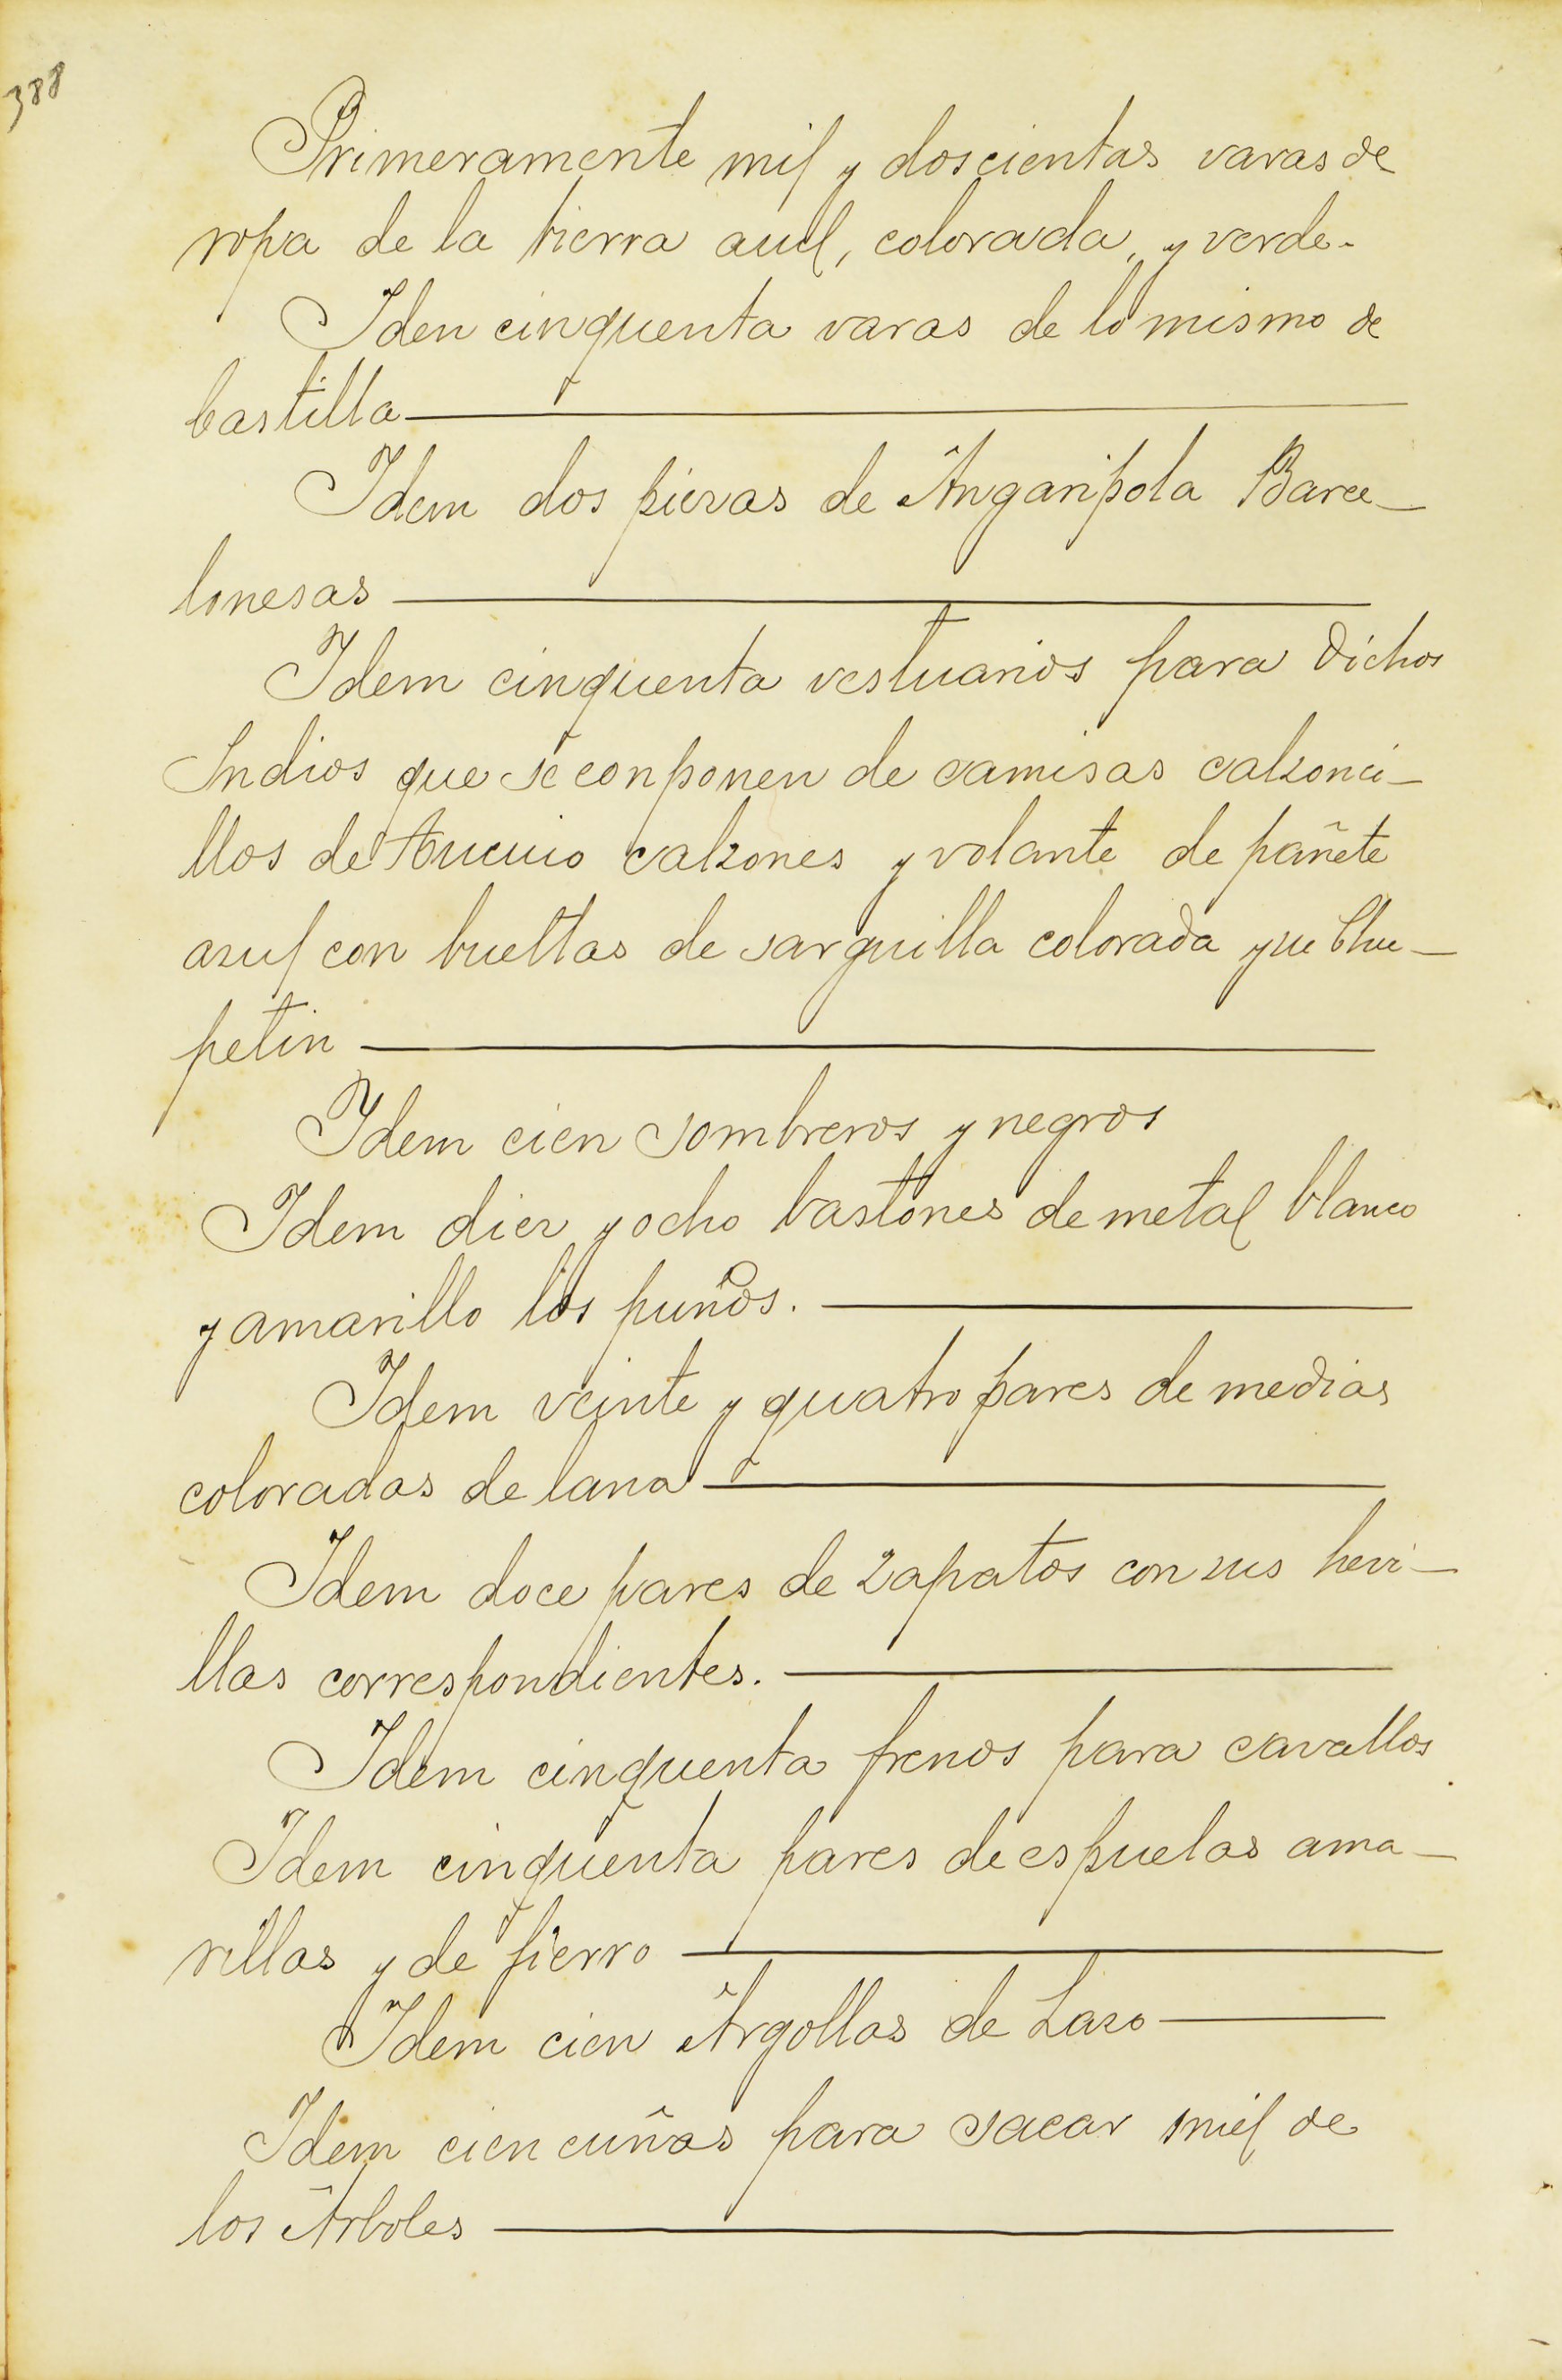 388
Primeramente mil y doscientas varas de
ropa de la tierra aul, colorada, y verde.
Iden cinquenta varas de lo mismo de
bastilla
Idem dos piezas de Angaripola Barce-
lonesas
Idem cinquenta vestuarios para dichos
Indios que se conponen de camisas calzonci-
llos de tucuio calzones y volante de pañete
azul con bueltas de sarguilla colorada y su Chu-
petin
Idem cien sombreros y negros
Idem diez y ocho bastones de metal blanco
y amarillo los puños.
Idem veinte y quatro pares de medias
coloradas de lana
Idem doce pares de zapatos con sus hevi-
llas correspondientes.
Idem cinquenta frenos para cavallos
Idem cinquenta pares de espuelas ama-
rillas y de fierro
Idem cien Argollas de Lazo
Idem cien cuñas para sacar miel de
los Arboles